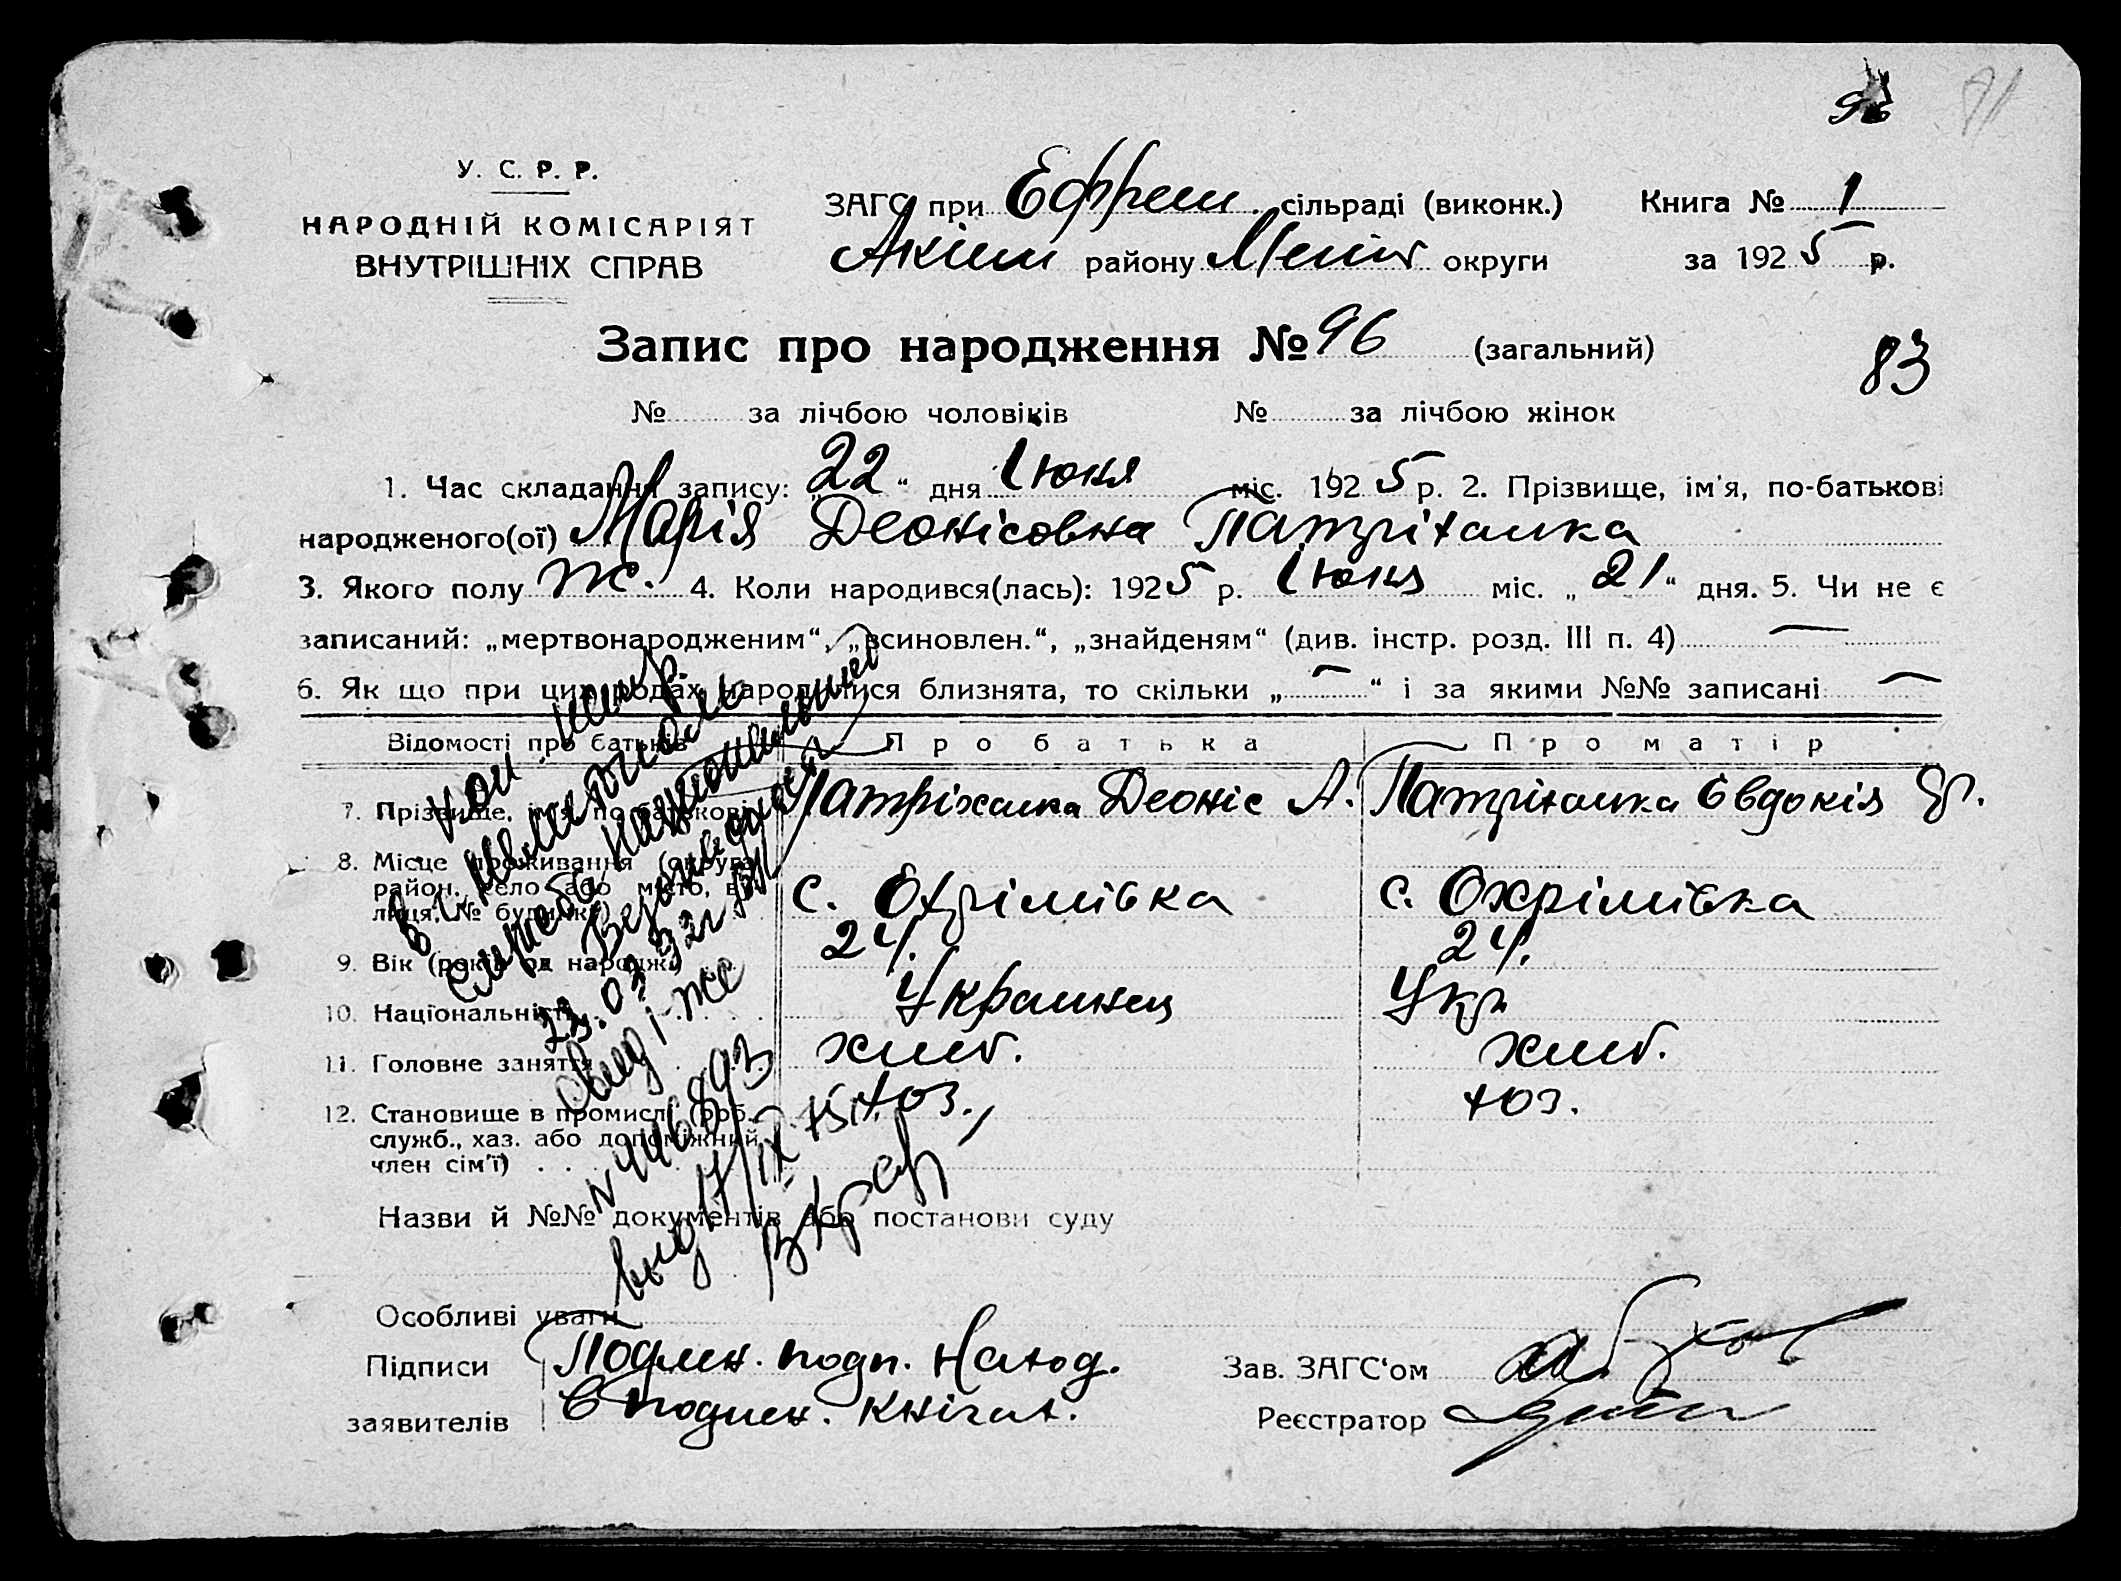 96 81
У. С. Р. Р.
НАРОДНІЙ КОМІСАРІЯТ
ВНУТРІШНІХ СПРАВ
ЗАГС при Ефрем сільраді (виконк.)
Акім району Меліт округи
Книга № 1
за 1925 р.
Запис про народження № 96 (загальний)
83
№ за лічбою чоловіків № за лічбою жінок
1. Час складання запису: „22“ дня Іюня міс. 1925 р. 2. Прізвище, ім'я, по-батькові
народженого(ої) Марія Деонісовна Патріхалка
3. Якого полу ж. 4. Коли народився(лась): 1925 р. Іюня міс. „21“ дня. 5. Чи не є
записаний: „мертвонародженим“, „всиновлен.“, „знайденям“ (див. інстр. розд. III п. 4) —
6. Як що при цих родах народилися близнята, то скільки „—“ і за якими №№ записані —
Відомості про батьків Про батька Про матір
7. Прізвище, ім'я, по батькові Патріхалка Деоніс А. Патріхалка Євдокія
8. Місце проживання (округа, район, село або місто, вулиця, № будинка) с. Охрімівка с. Охрімівка
9. Вік (років од народж.) 24. 24.
10. Національність Украинец Укр
11. Головне заняття хліб. хліб.
12. Становище в промислі (роб., служб., хаз. або допоміжний член сім'ї) хоз. хоз.
Назви й №№ документів або постанови суду
Особливі уваги
Підписи заявителів Подлен. подп. Наход.
в подлен. кнігах.
Зав. ЗАГС'ом
Реєстратор
23.03.92г
№ 446893
выд 17/IX 75